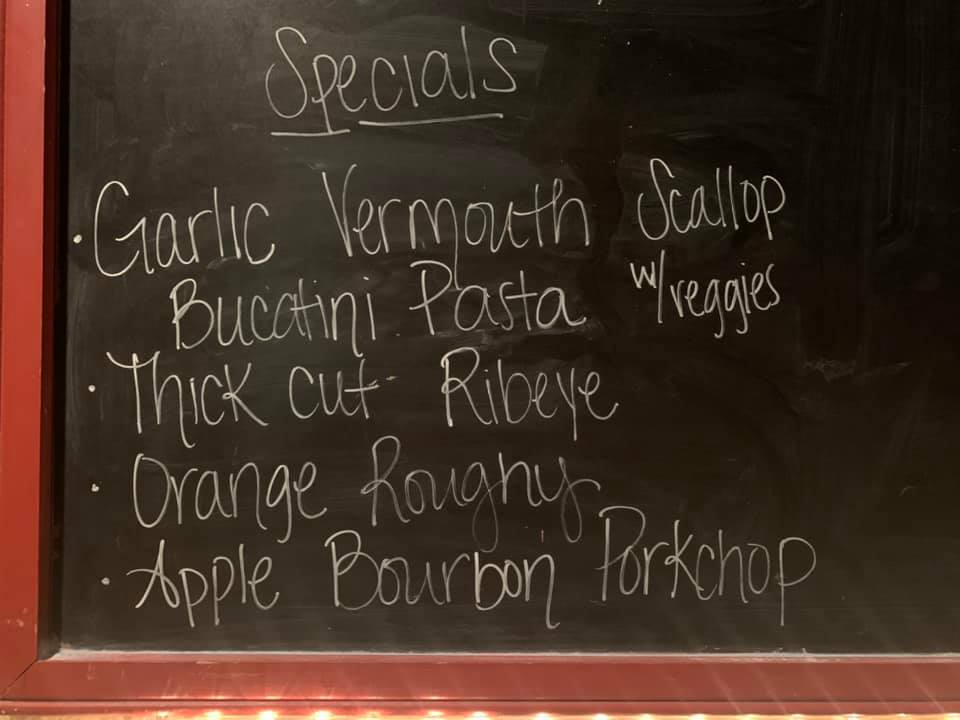 Specials
· Garlic Vermouth Scallop
Bucatini Pasta w/veggies
· Thick cut Ribeye
· Orange Roughy
· Apple Bourbon Porkchop